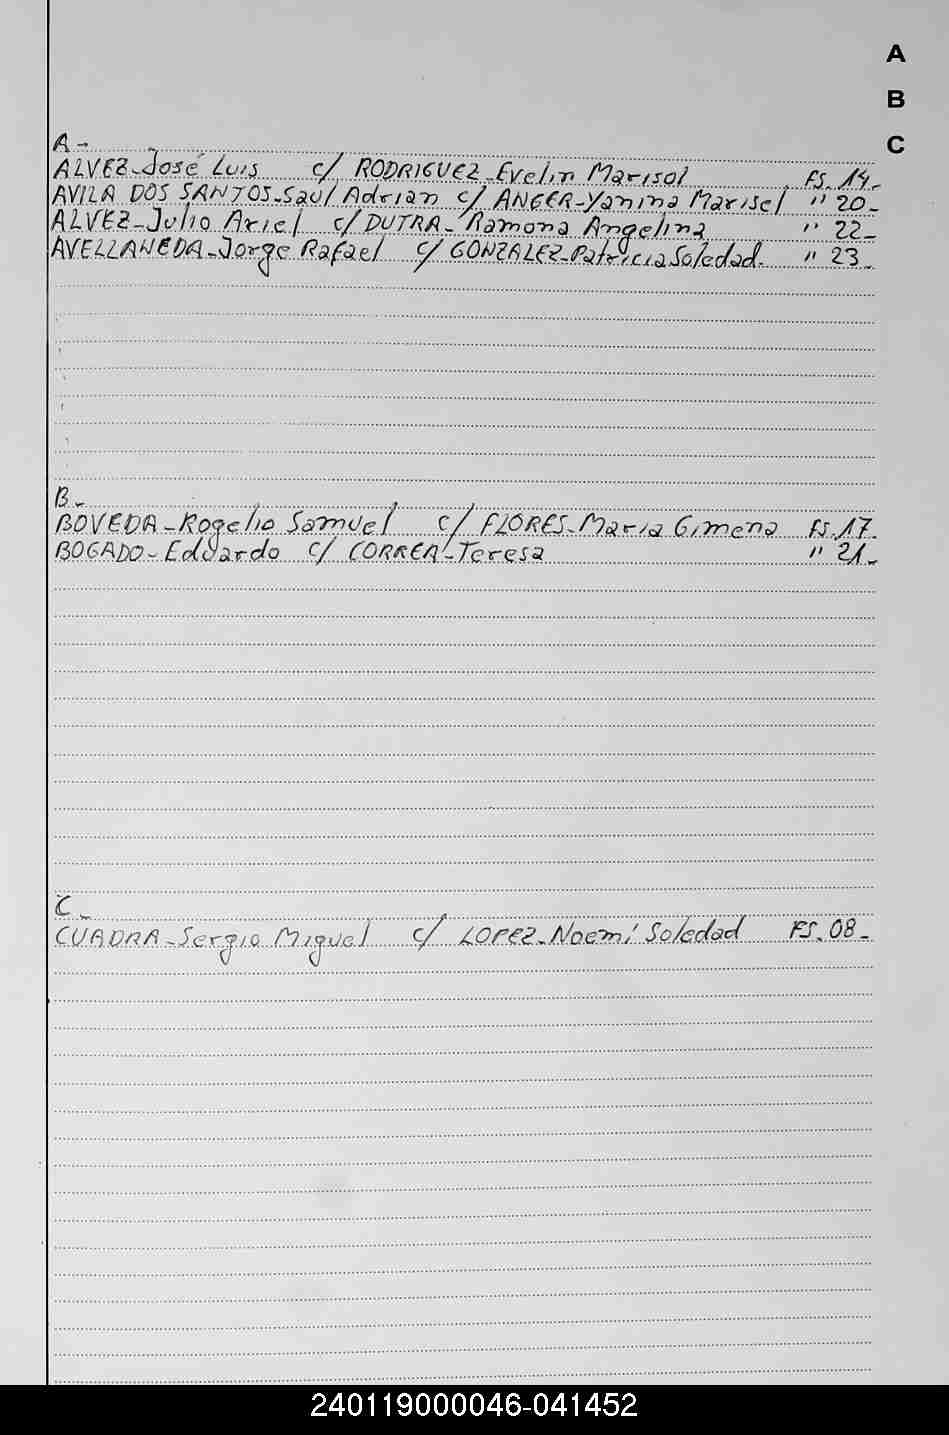 A
B
C
A-
ALVEZ-José Luis c/ RODRIGUEZ-Evelin Marisol FS. 14-
AVILA DOS SANTOS-Saul Adrian c/ ANGER-Yanina Marisel " 20-
ALVEZ-Julio Ariel c/ DUTRA-Ramona Angelina " 22-
AVELLANEDA-Jorge Rafael c/ GONZALEZ-Patricia Soledad. " 23-
B-
BOVEDA-Rogelio Samuel c/ FLORES-Maria Gimena FS. 17-
BOGADO-Eduardo c/ CORREA-Teresa " 21-
C-
CUADRA-Sergio Miguel c/ LOPEZ-Noemí Soledad FS. 08-
240119000046-041452